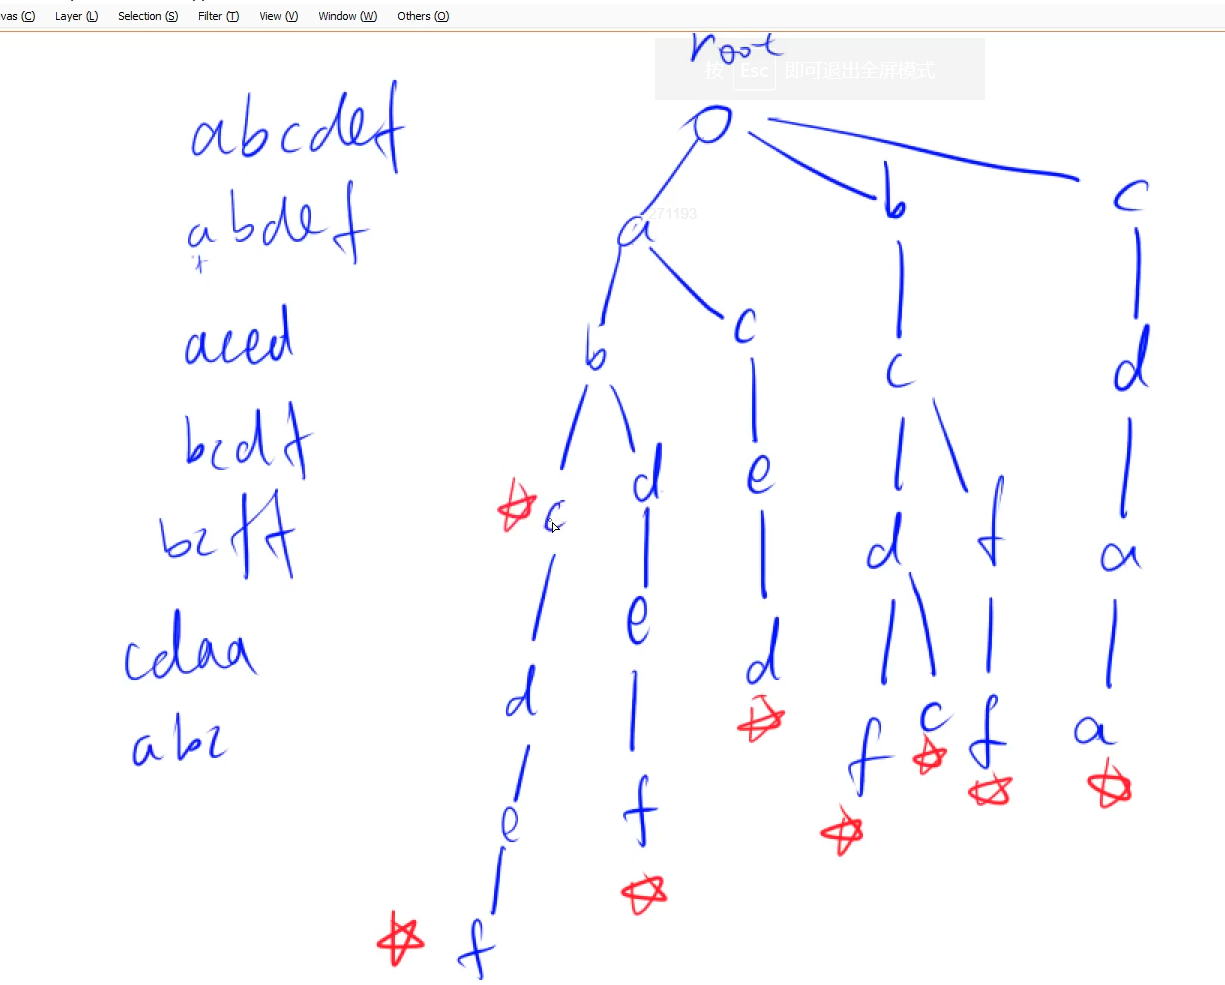 vas (C) Layer (L) Selection (S) Filter (T) View (V) Window (W) Others (O)
root
按 Esc 即可退出全屏模式
abcdef
abdef
aced
bcdf
bcff
cdaa
abc
271193
a b c
b c c d
c d e d f a
d e d f c f a
e f
f